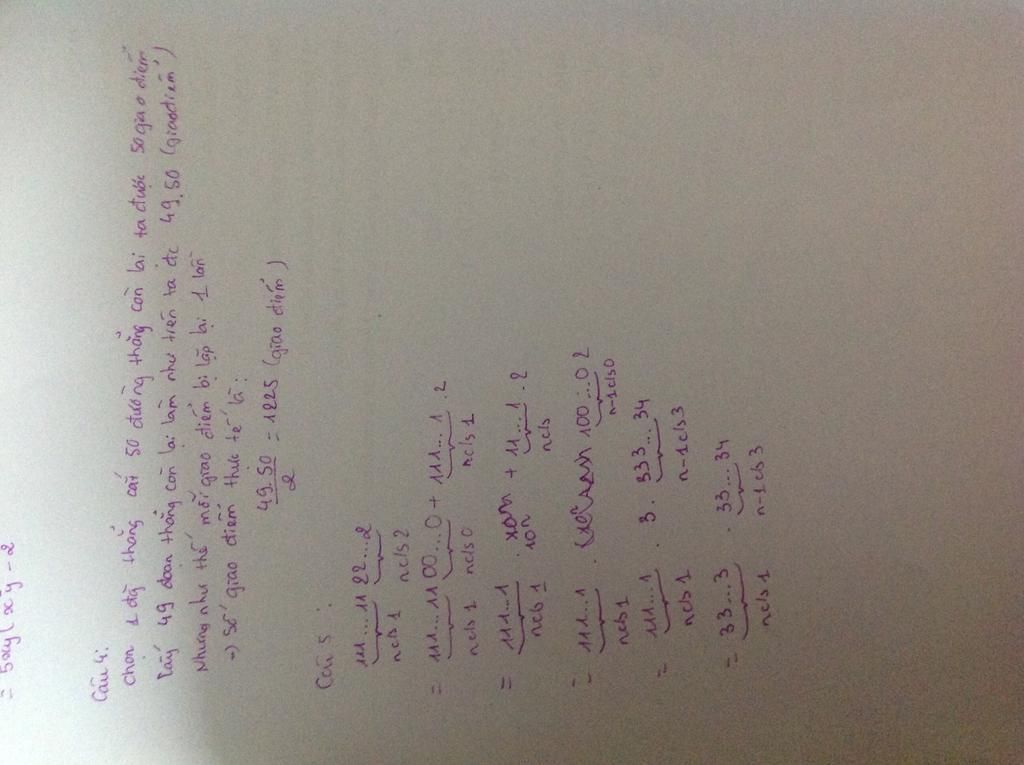 = 5xy(x²y - 2
Câu 4:
Chọn 1 đg thẳng cắt 50 đường thẳng còn lại ta được 50 giao điểm
Lấy 49 đoạn thẳng còn lại làm như trên ta đc 49.50 (giao điểm)
Nhưng như thế mỗi giao điểm bị lặp lại 1 lần
→ Số giao điểm thực tế là:
49.50 / 2 = 1225 (giao điểm)
Câu 5:
111...11 22...2
n c/s 1 n c/s 2
= 111...11 00...0 + 111...1 . 2
n c/s 1 n c/s 0 n c/s 1
= 111...1 . 10n + 11...1 . 2
n c/s 1 n c/s
= 111...1 . 100...0 2
n c/s 1 n-1 c/s 0
= 111...1 . 3 . 333...34
n c/s 1 n-1 c/s 3
= 33...3 . 33...34
n c/s 1 n-1 c/s 3